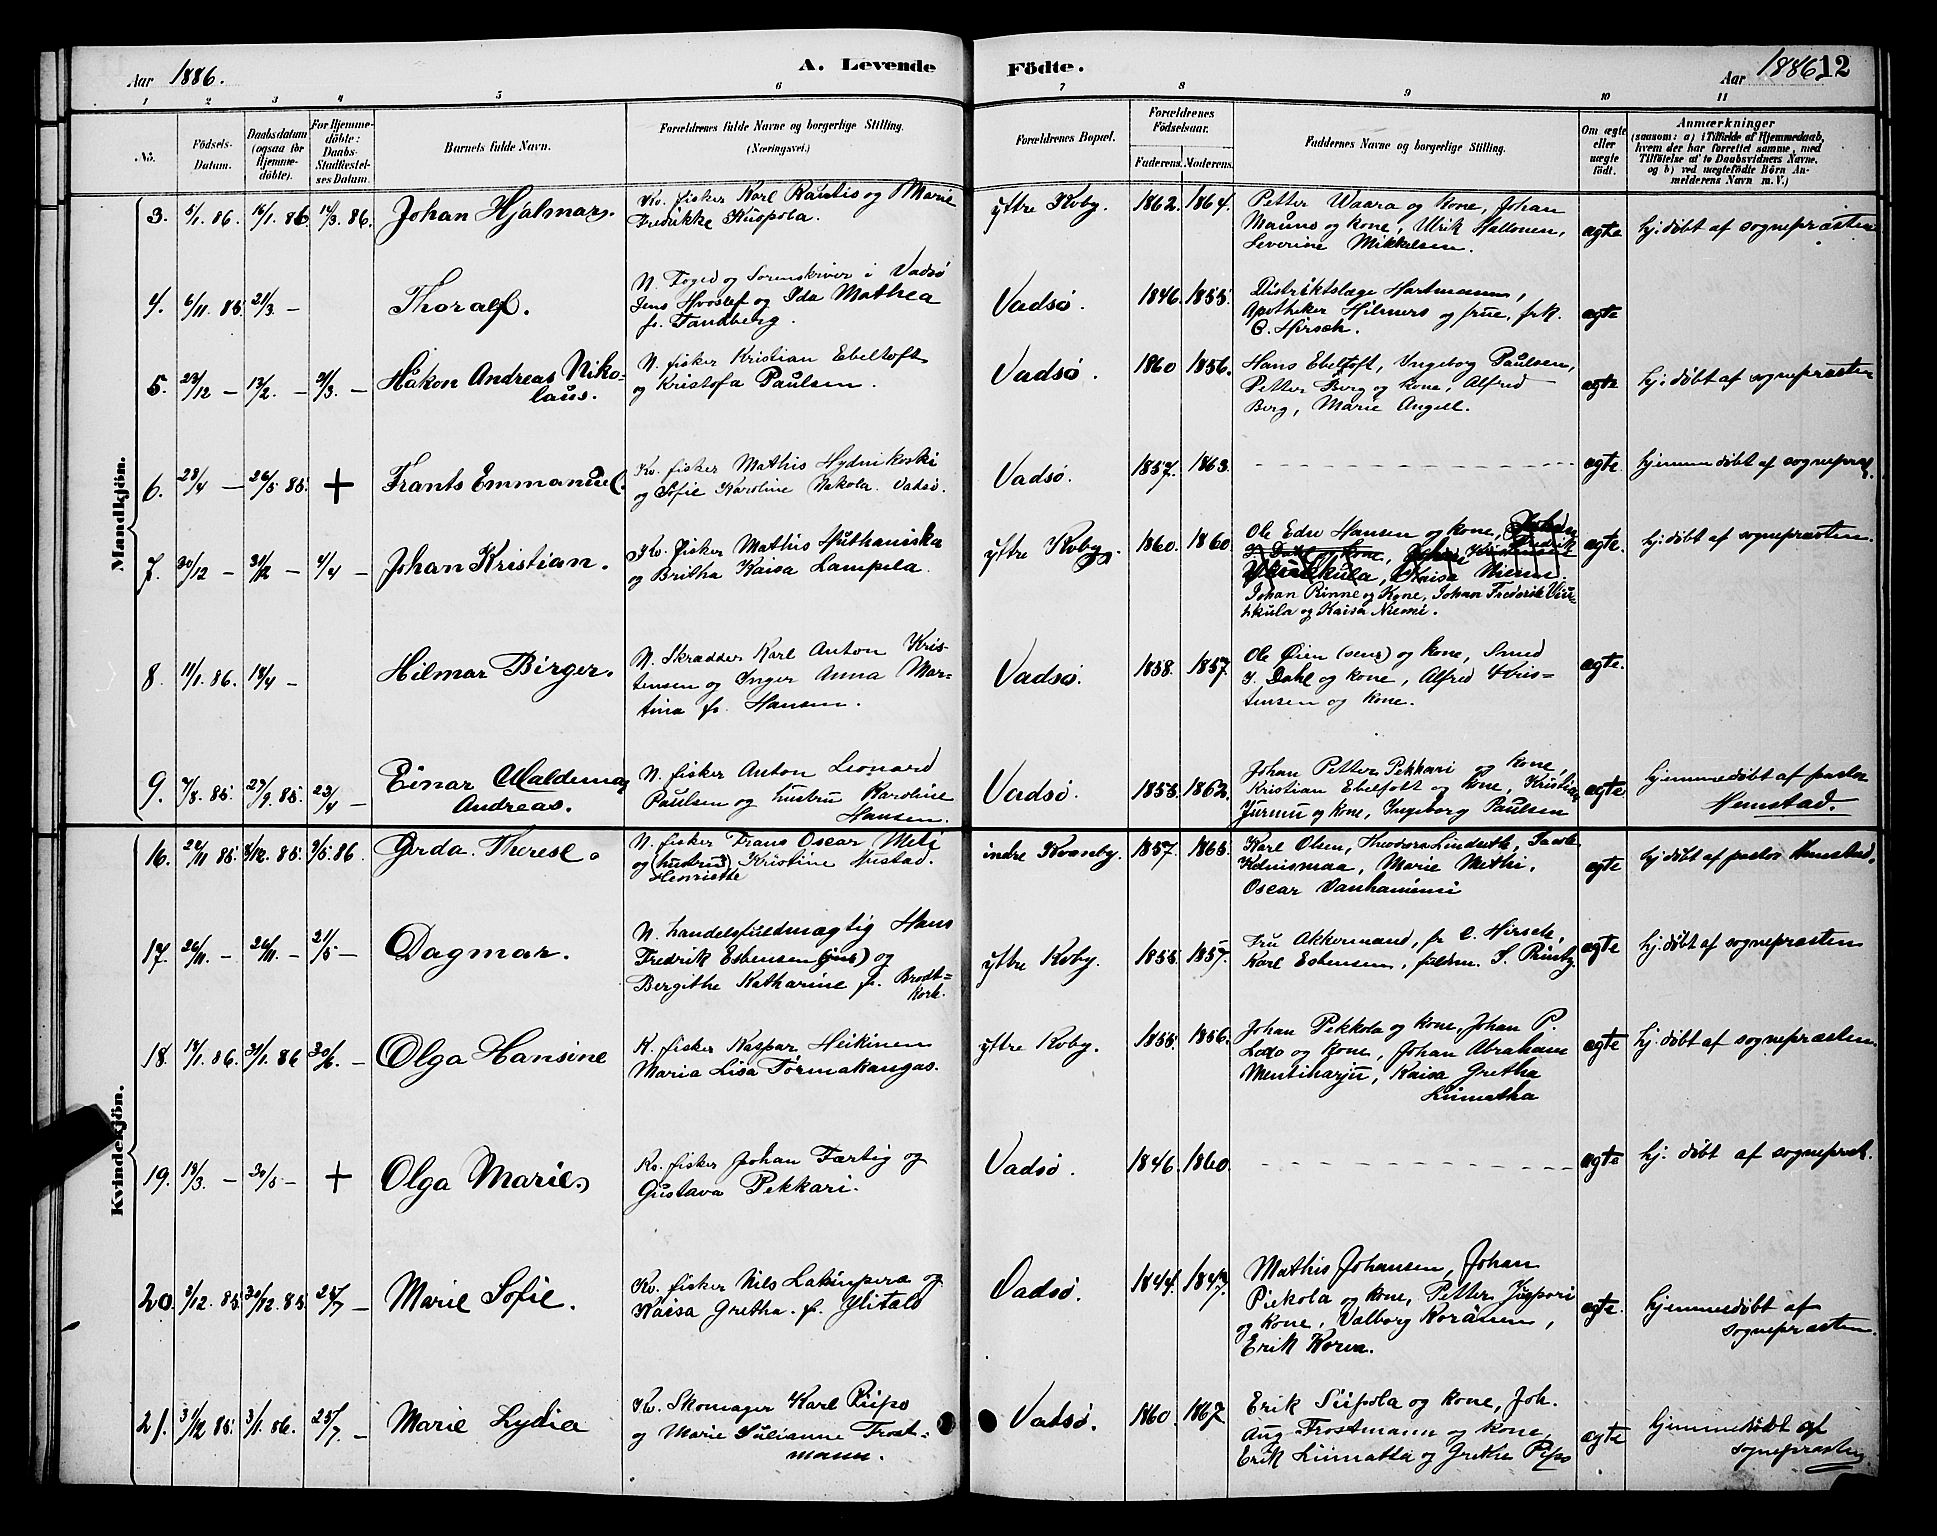 Aar 1886.
A. Levende
Födte.
Aar 1886. 12
1 2 3 4 5 6 7 8 9 10 11
No.
Födsels-
Datum.
Daabsdatum
(ogsaa for
Hjemme-
döbte).
For Hjemme-
döbte:
Daabs-
Stadfæstel-
ses Datum.
Barnets fulde Navn.
Forældrenes fulde Navne og borgerlige Stilling.
(Næringsvei.)
Forældrenes Bopæl.
Forældrenes
Födselsaar.
Faderens. Moderens.
Faddernes Navne og borgerlige Stilling.
Om ægte
eller
uægte
födt.
Anmærkninger
(saasom: a) i Tilfælde af Hjemmedaab,
hvem der har forrettet samme, med
Tilföielse af to Daabsvidners Navne,
og b) ved uægtefödte Börn An-
melderens Navn m. V.)
Mandkjön.
3. 5/1. 86. 16/1. 86. 14/3. 86. Johan Hjalmar.
Kv. fisker Karl Rautis og Marie
Fredrikke Kuspola.
yttre Koby. 1862. 1864.
Petter Waara og kone, Johan
Mauno og kone, Ulrik Hallonen,
Leverine Mikkelsen.
ægte hj. döbt af sognepræsten
4. 6/11. 85. 21/3. — Thoralf.
N. Foged og Sorenskriver i Vadsø
Jens Hvoslef og Ida Mathea
f. Tandberg.
Vadsø. 1846. 1855.
Distriktslæge Hartmann,
Apotheker Hilmers og frue, frk.
C. Hirsch.
ægte
5. 23/12 — 13/2. — 21/3. — Håkon Andreas Niko-
laus.
N. fisker Kristian Ebeltoft
og Kristofa Paulsen.
Vadsø. 1860 1856.
Hans Ebeltoft, Ingeborg Paulsen,
Petter Berg og kone, Alfred
Berg, Marie Angell.
ægte hj. döbt af sognepræsten
6. 28/4 — 26/5 85. + Frants Emmanuel.
Kv. fisker Mathis Hydnikoski
og Sofie Karoline Jakola. Vadsø.
Vadsø. 1857. 1863.
ægte hjemmedöbt af sognepræst.
7. 30/12 — 31/12 — 4/4 — Johan Kristian.
Kv. fisker Mathis Huthaniska
og Britha Kaisa Lampela.
yttre Koby. 1860. 1860.
Ole Edv Hansen og kone,
Johan Rinne og Kone, Johan Frederik Viin-
hkula og Kaisa Niemi.
ægte. hj. döbt af sognepræsten.
8. 11/1. 86. 18/4 — Hilmar Birger.
N. Skrædder Karl Anton Kris-
tensen og Inger Anna Mar-
tina f. Hansen.
Vadsø. 1858. 1857.
Ole Øien (sen) og kone, Smed
J. Dahl og kone, Alfred Kris-
tensen og kone.
ægte.
9. 7/8. 85. 27/9. 85. 23/4 — Einar Waldemar
Andreas.
N. fisker Anton Leonard
Paulsen og hustru Karoline
Hansen.
Vadsø. 1853. 1862.
Johan Petter Pekkari og kone,
Kristian Ebeltoft og kone, Kristian
Jurmu og kone, Ingeborg Paulsen
ægte. hjemmedöbt af pastor
Hemstad.
Kvindekjön.
16. 22/11 85. 4/12. 85. 2/5. 86. Gerda Therese.
N. fisker Frans Oscar Meti
og (hustru) Kristine Mustad.
Henriette
indre Kvanby. 1857. 1865.
Karl Olsen, Theodora Lindseth, Jacob
Kolnismaa, Marie Methi,
Oscar Vanhaniemi
ægte hj. döbt af pastor Hemstad.
17. 26/11. — 26/11. — 21/5 — Dagmar.
N. handelsfuldmægtig Hans
Fredrik Esbensen (jun) og
Bergithe Katharine f. Brodt-
korb.
yttre Koby. 1855. 1857.
Fru Akkermand, fr C. Hirsch,
Karl Esbensen, fuldm. S. Rinby.
ægte hj. döbt af sognepræsten
18. 14/1. 86. 31/1. 86 30/6. — Olga Hansine
K. fisker Kaspar Heikinen
Maria Lisa Törmakangas.
yttre Koby. 1855. 1856.
Johan Pekkola og kone, Johan P.
Lodo og kone, Johan Abraham
Mentiharju, Kaisa Gretha
Liimatha
ægte hj. döbt af sognepræsten.
19. 13/3. — 30/5 — + Olga Marie.
Kv. fisker Johan Færtig og
Gustava Pekkari.
Vadsø. 1846. 1860.
ægte hj. döbt af sognepræst.
20. 3/12. 85. 30/12. 85. 25/7 — Marie Sofie.
Kv. fisker Nils Lakinpera og
Kaisa Gretha. f. Ylitalo
Vadsø. 1844. 1847.
Mathis Johansen, Johan
Piekola og kone, Petter Juspori
og kone, Valborg Koränen,
Erik Korva.
ægte. hjemmedöbt af
sognepræsten.
21. 31/12 85. 3/1. 86. 25/7. — Marie Lydia
Kv. Skomager Karl Piipo
og Marie Julianne Frost-
mann.
Vadsø. 1860. 1867
Erik Siipola og kone, Joh.
Aug Frostmann og kone,
Erik Liimatta og Grethe Pipo
ægte hjemmedöbt af
sognepræsten